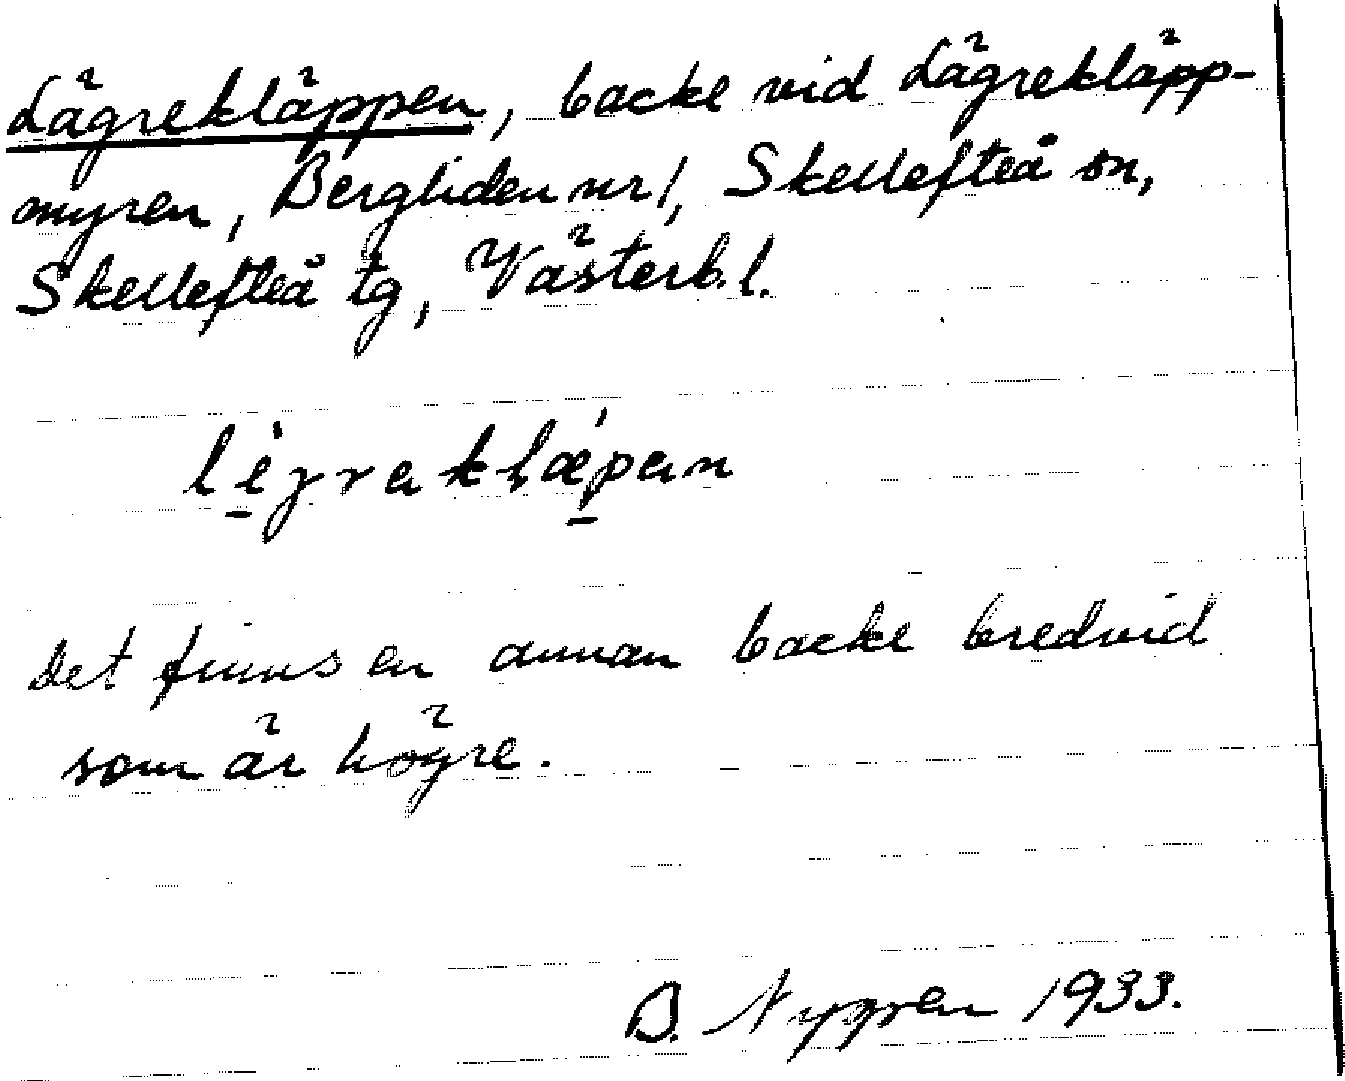 Lägrekläppen, backe vid Lägrekläpp-
myren, Bergliden nr 1, Skellefteå sn,
Skellefteå tg, Västerb. l.
lèɣraklápan
Det finns en annan backe bredvid
som är högre.
B. Nygren 1933.